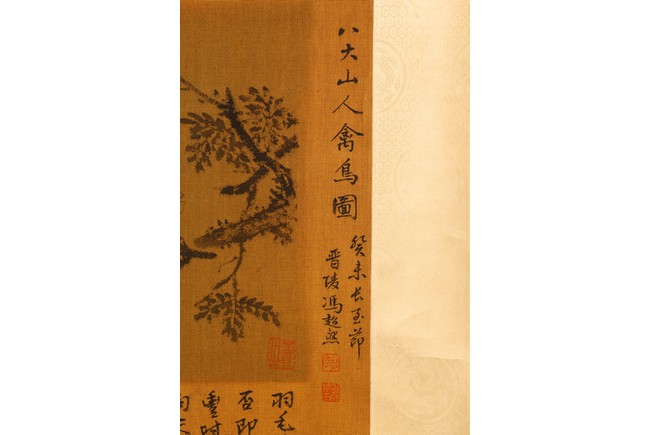 八大山人禽鳥圖
癸未長至節
晉陵馮超然
羽毛
否即